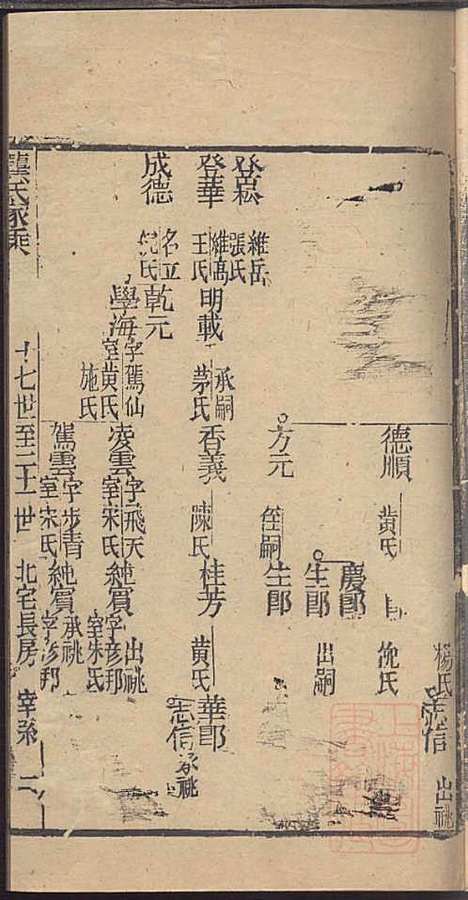 楊氏 志信 出祧
德順 黃氏
沈氏
慶郎
生郎 出嗣
方元 侄嗣 生郎
登崧 維岳 張氏
登華 維高 王氏 明載 承嗣 茅氏 香義 陳氏 桂芳 黃氏 華郎
志信 承祧
成德 名立 倪氏 乾元
學海 字駕仙 室黃氏 施氏 凌雲 字飛天 室宋氏 純賓 字彥邦 室朱氏 出祧
駕雲 字步青 室宋氏 純賓 承祧 字彥邦
龔氏家乘 十七世至二十一世 北宅長房 宰孫 二